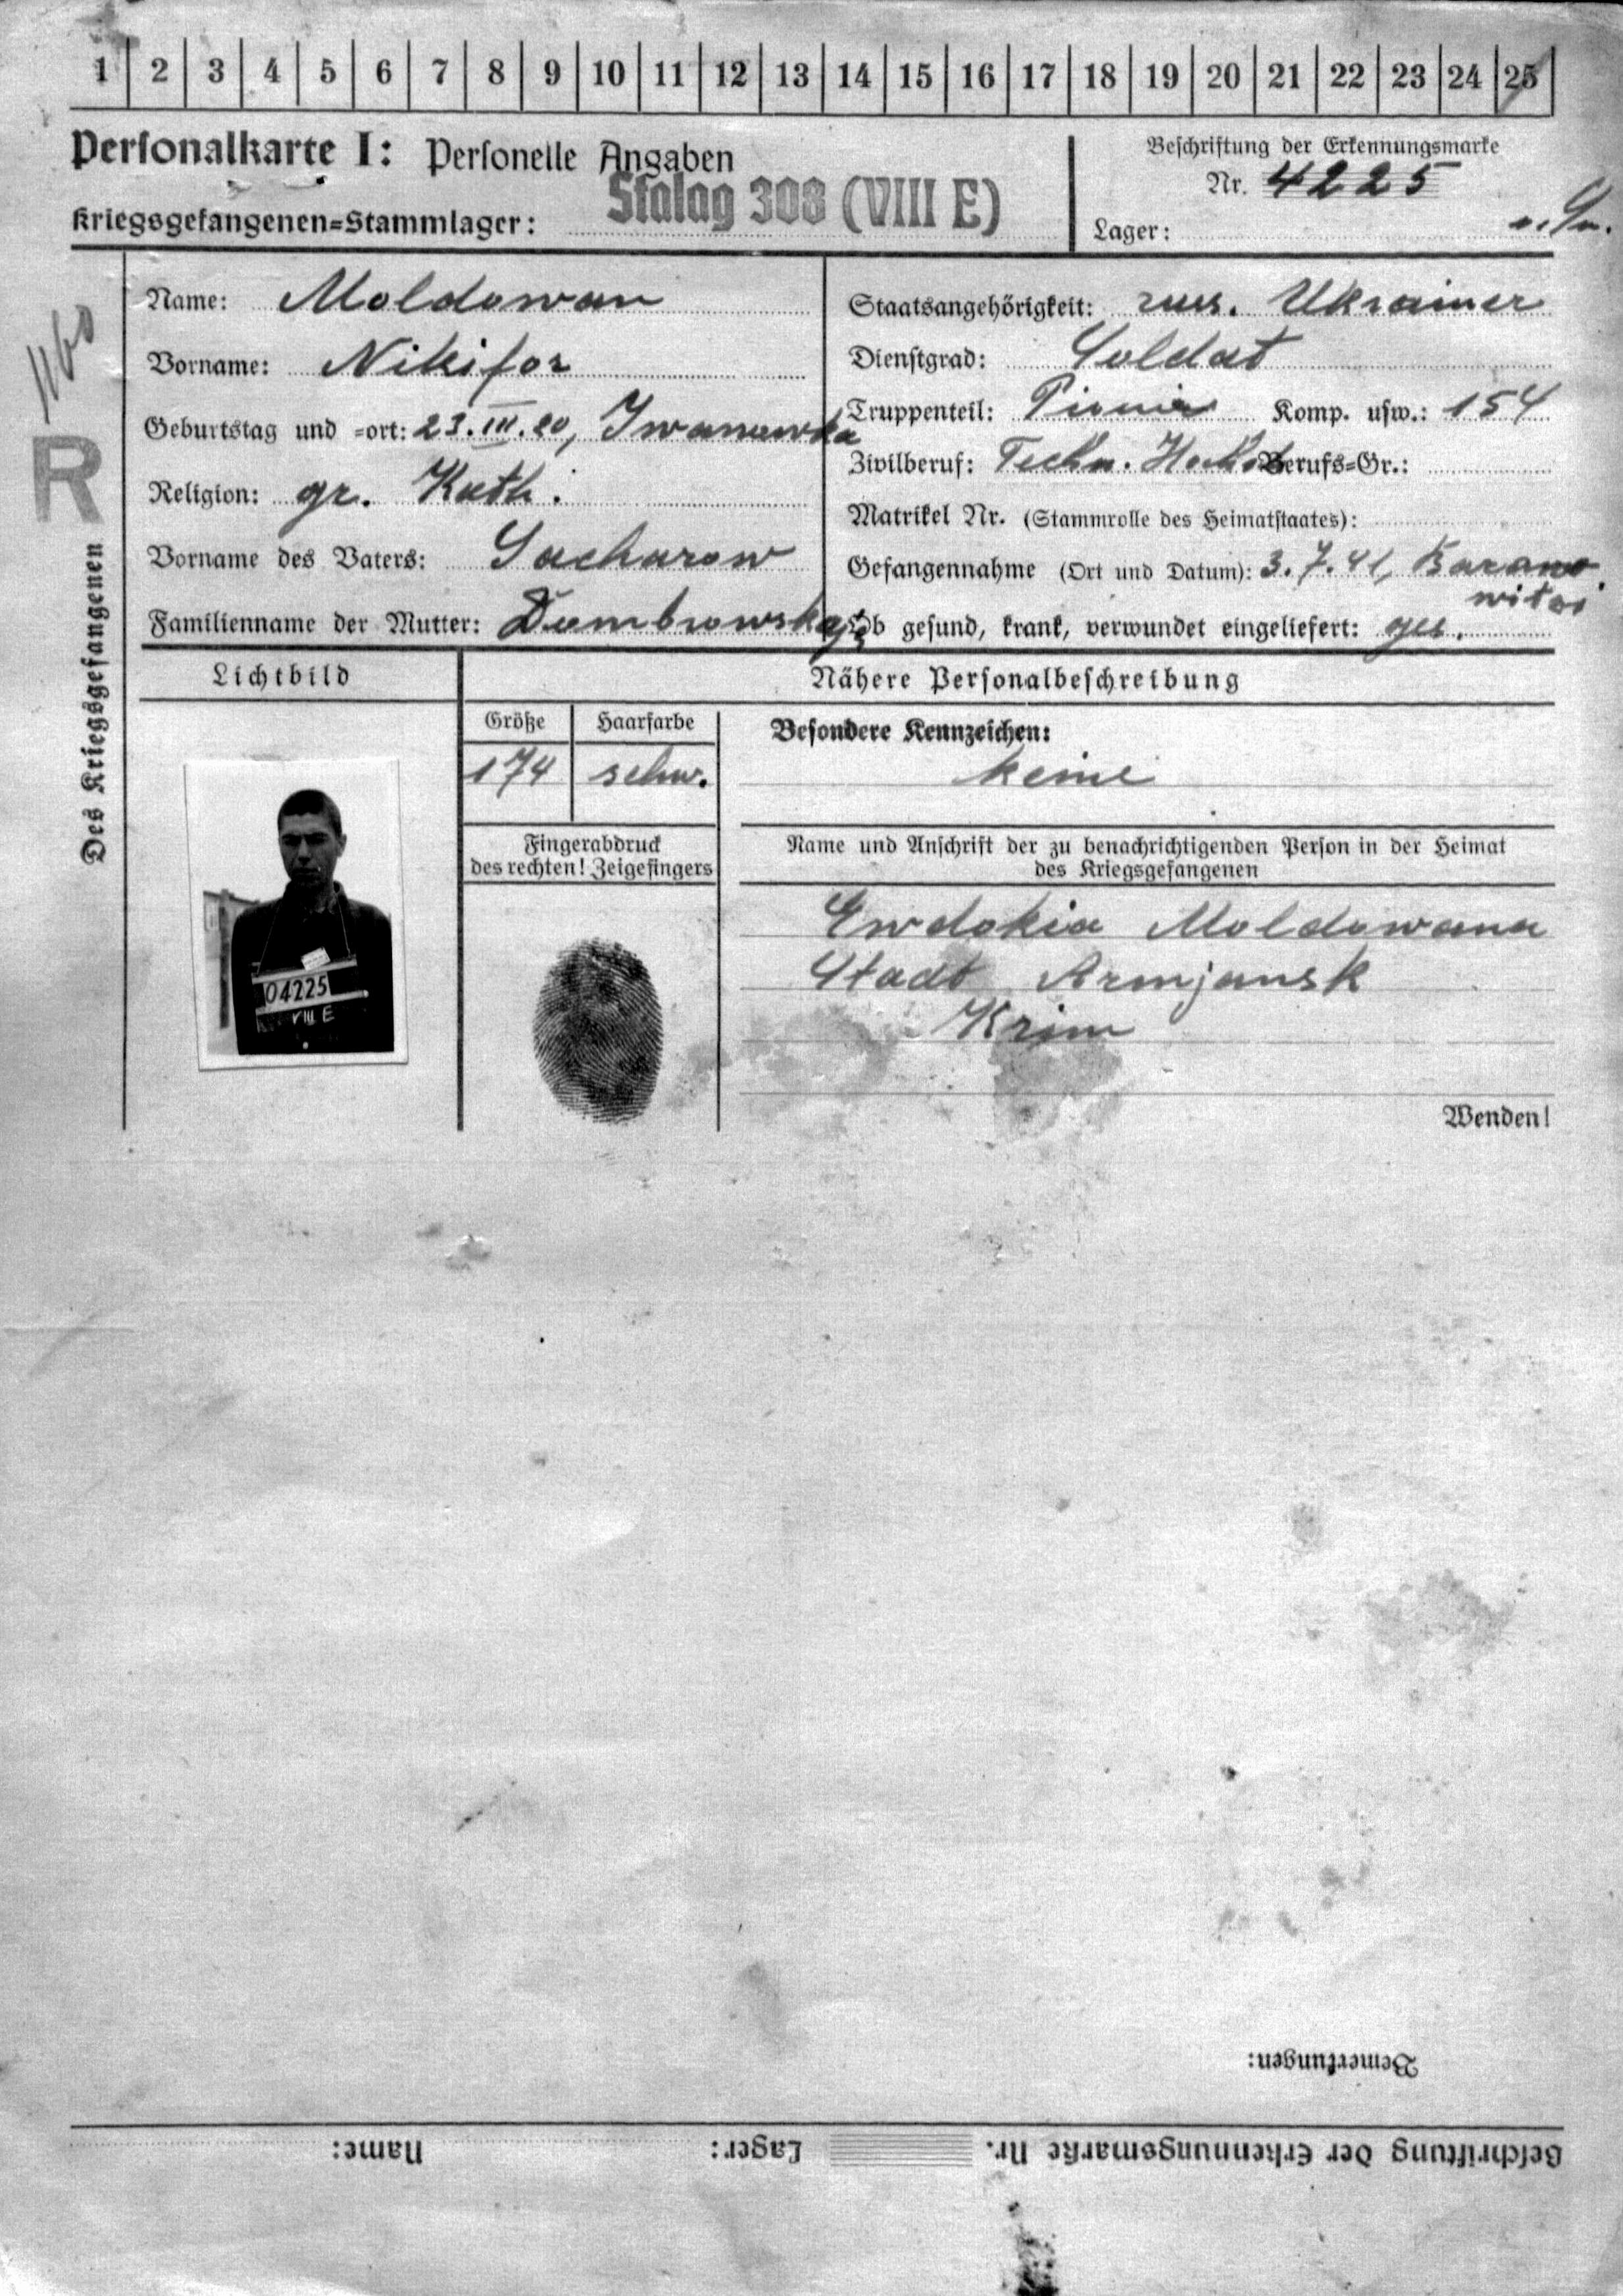 1 2 3 4 5 6 7 8 9 10 11 12 13 14 15 16 17 18 19 20 21 22 23 24 25
Personalkarte I: Personelle Angaben
Kriegsgefangenen=Stammlager: Stalag 308 (VIII E)
Beschriftung der Erkennungsmarke
Nr. 4225
Lager:
R
Des Kriegsgefangenen
Name: Moldowan
Vorname: Nikifor
Geburtstag und =ort: 23.III.20, Iwanowka
Religion: gr. Kath.
Vorname des Vaters: Sacharow
Familienname der Mutter: Dombrowskaja
Staatsangehörigkeit: rus. Ukrainer
Dienstgrad: Soldat
Truppenteil: Pionier Komp. usw.: 154
Zivilberuf: Techn. Berufs=Gr.:
Matrikel Nr. (Stammrolle des Heimatstaates):
Gefangennahme (Ort und Datum): 3.7.41, Barano
witsi
Ob gesund, krank, verwundet eingeliefert: ges.
Lichtbild
Nähere Personalbeschreibung
Größe Haarfarbe
174 schw.
Besondere Kennzeichen:
keine
Fingerabdruck
des rechten! Zeigefingers
Name und Anschrift der zu benachrichtigenden Person in der Heimat
des Kriegsgefangenen
Ewdokia Moldowana
Stadt Armjansk
Krim
04225
VIII E
Wenden!
Bemerkungen:
Beschriftung der Erkennungsmarke Nr. Lager: Name: